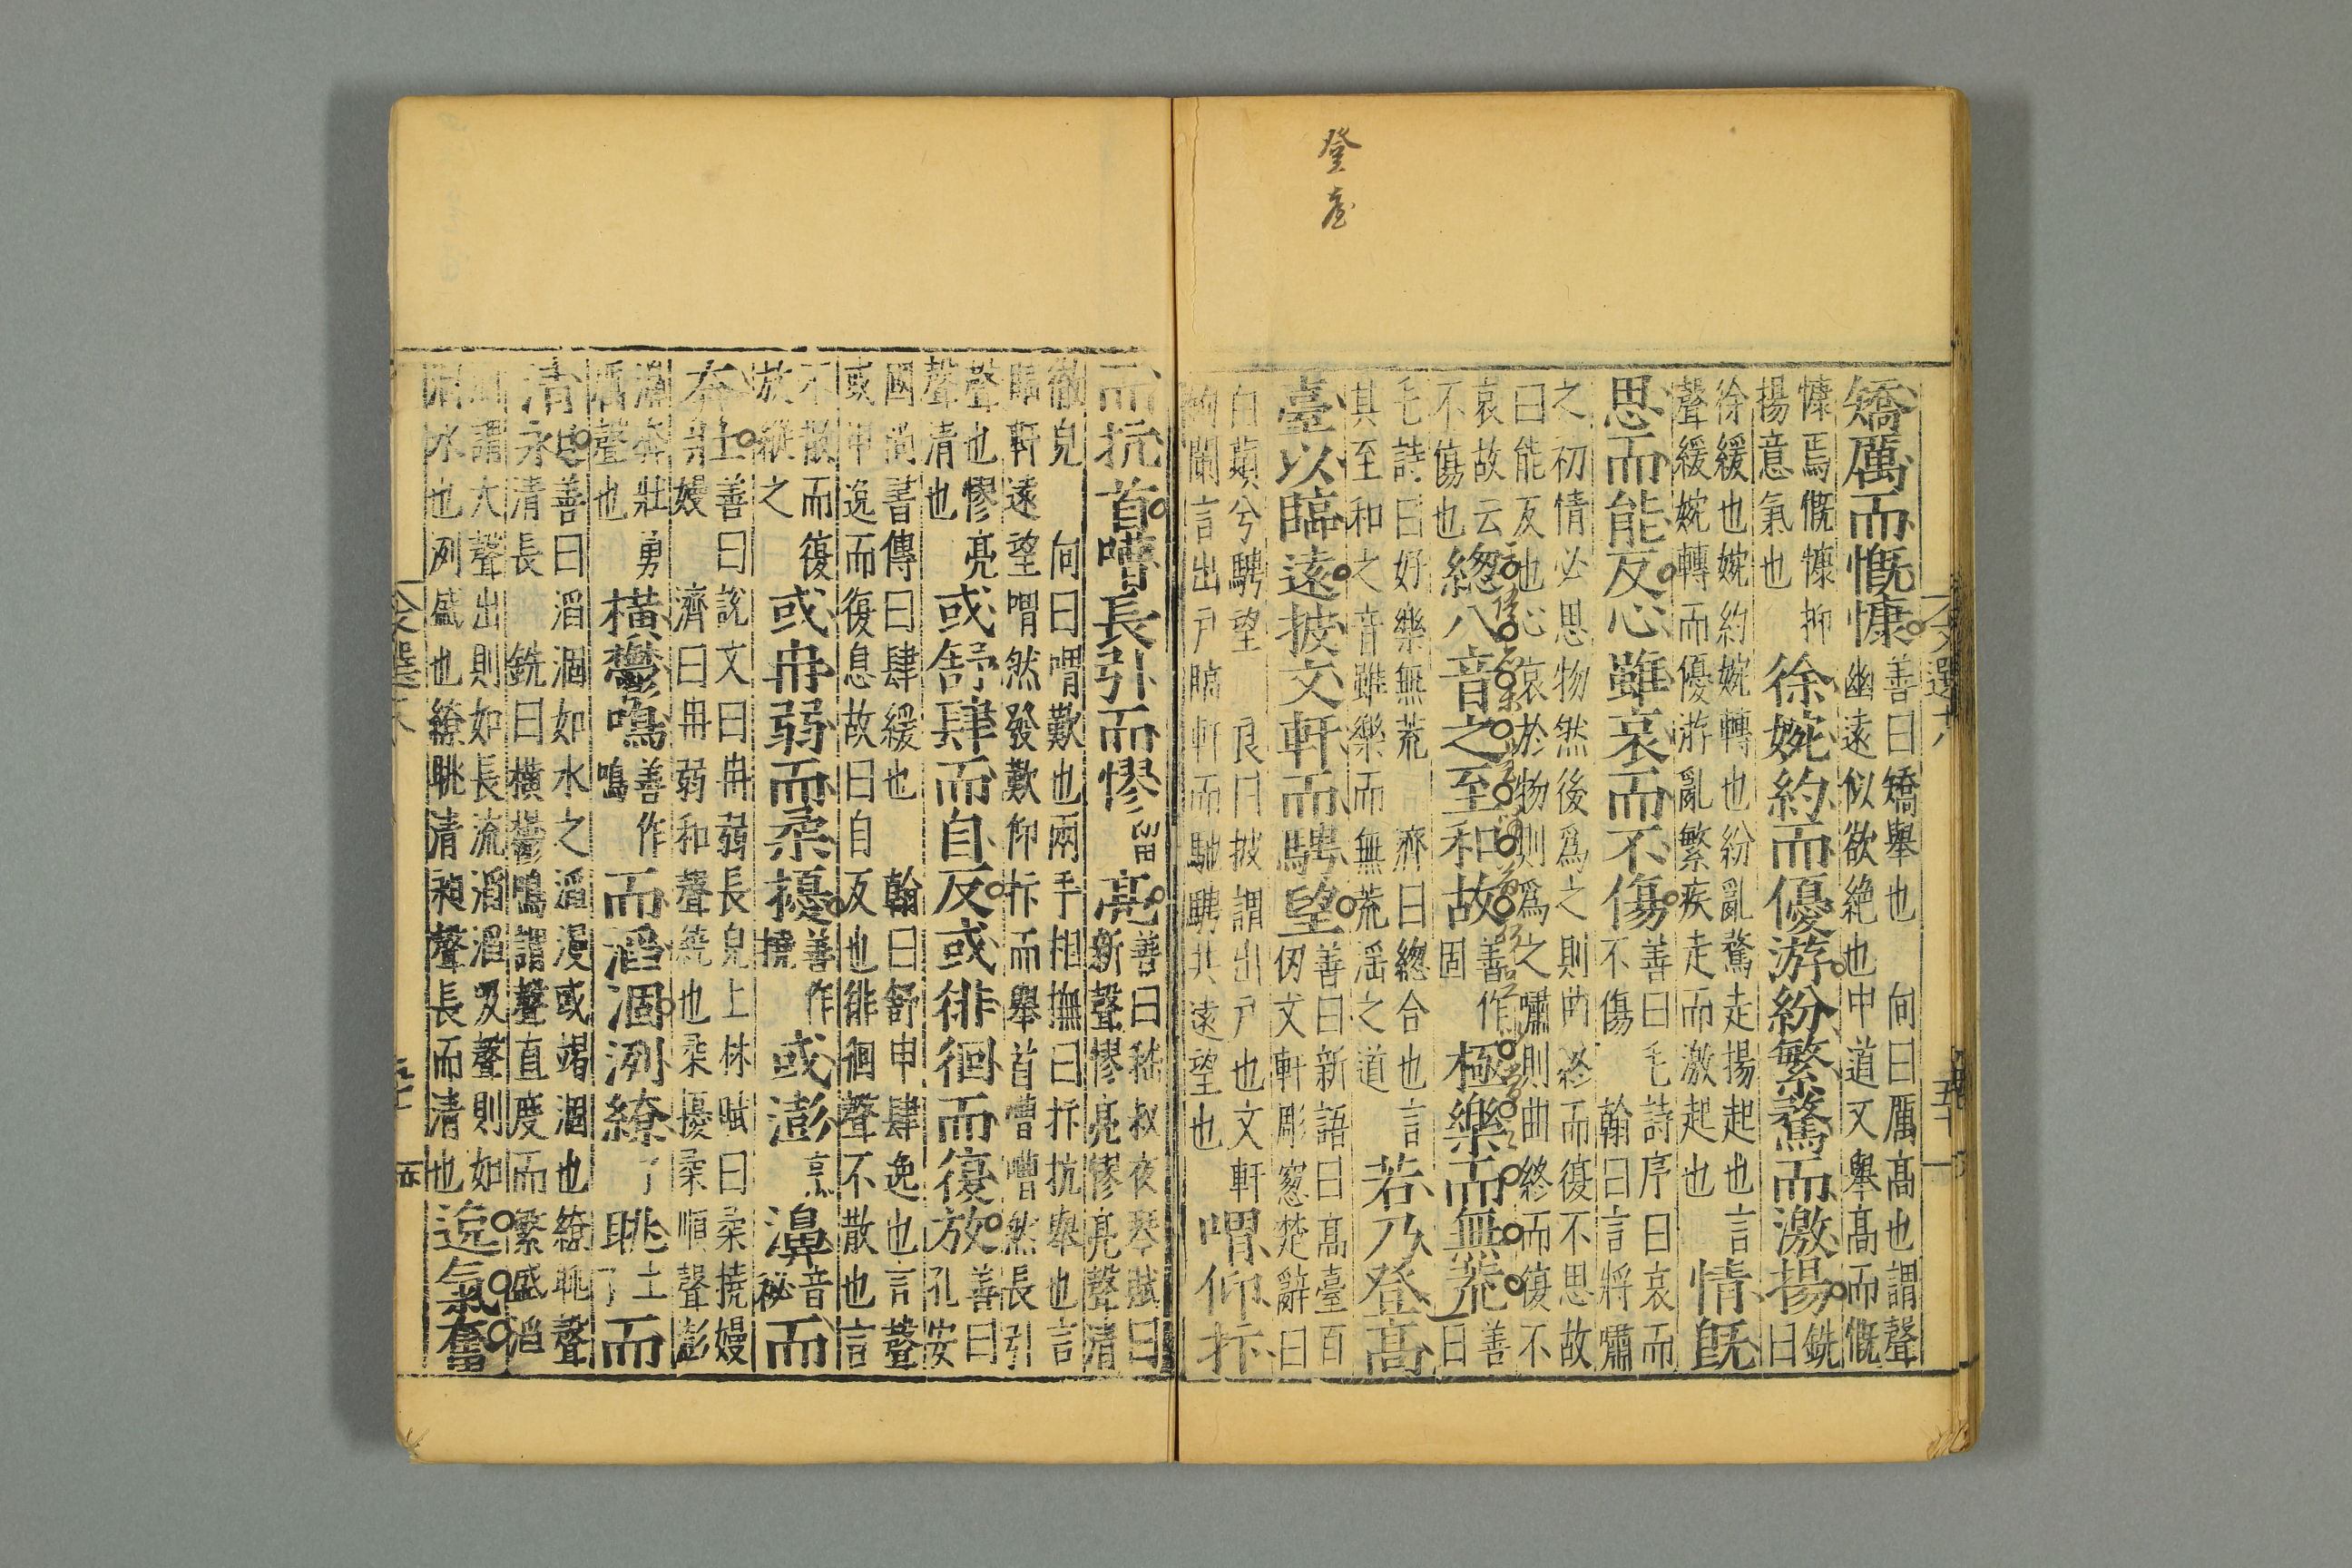 登臺
文選十八
五十一
矯厲而慨慷善曰矯舉也　向曰厲高也謂聲幽遠似欲絶也中道又舉高而慨
慷焉慨慷抑揚意氣也徐婉約而優游紛繁騖而激揚銑曰
徐緩也婉約婉轉也紛亂騖走揚起也言聲緩婉轉而優游亂繁疾走而激起也情旣
思而能反心雖哀而不傷善曰毛詩序曰哀而不傷　翰曰言將嘯
之初情必思物然後爲之則曲終而復不思故曰能反也心哀於物則爲之嘯則曲終而復不
哀故云不傷也緫八音之至和故善作固極樂而無荒善曰
毛詩曰好樂無荒　濟曰緫合也言其至和之音雖樂而無荒滛之道若乃登高
臺以臨遠披文軒而騁望善曰新語曰高臺百仞文軒彫窓楚辭曰
白蘋兮騁望　良曰披謂出戸也文軒鉤闌言出戸臨軒而馳騁其遠望也喟仰抃
而抗首嘈長引而憀留亮善曰嵇叔夜琴賦曰新聲憀亮憀亮聲清
徹皃　向曰喟歎也兩手相撫曰抃抗舉也言臨軒遠望喟然發歎仰抃而舉首嘈嘈然長引
聲也憀亮聲清也或舒肆而自反或徘徊而復放善曰孔安
國尚書傳曰肆緩也　翰曰舒申肆逸也言聲或申逸而復息故曰自反也徘徊聲不散也言
不散而復放縱之或冉弱而柔擾善作撓或澎烹濞音祕而
奔壯善曰說文曰冉弱長皃上林賦曰柔撓嫚嫚　濟曰冉弱和聲繞也柔擾柔順聲澎
濞奔壯勇濞聲也橫鬱鳴善作嗚而滔涸冽繚了眺土了而
清昶善曰滔涸如水之滔漫或竭涸也繚眺聲清長　銑曰橫鬱鳴謂聲直度而繁盛滔
涸謂大聲出則如長流滔滔吸聲則如涸水也冽盛也繚眺清昶聲長而清也逸氣奮